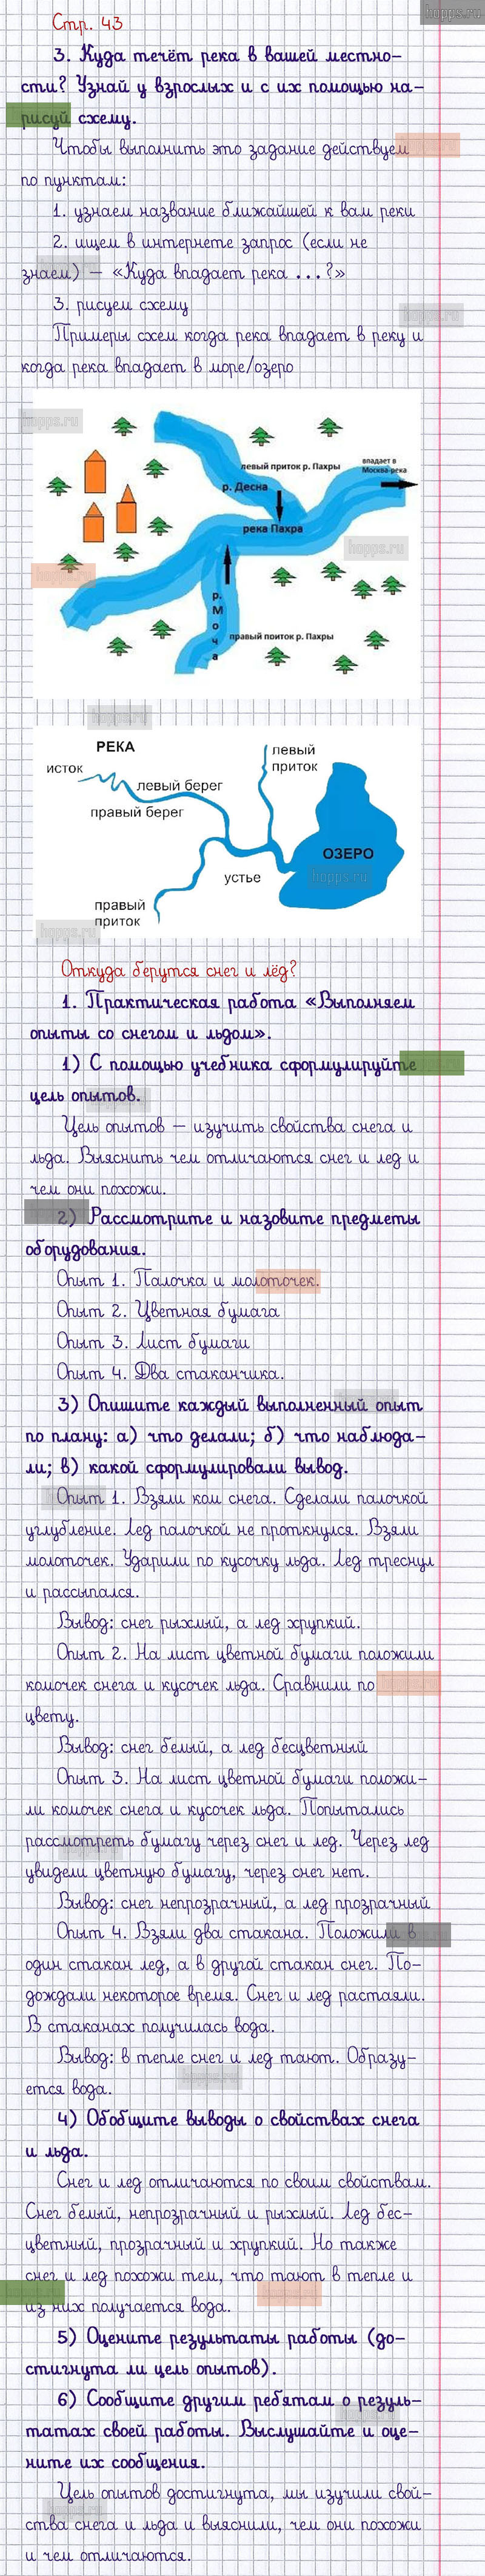 hopps.ru
Стр. 43
3. Куда течёт река в вашей местно-
сти? Узнай у взрослых и с их помощью на-
рисуй схему.
Чтобы выполнить это задание действуем
по пунктам:
1. узнаем название ближайшей к вам реки
2. ищем в интернете запрос (если не
знаем) – «Куда впадает река ...?»
3. рисуем схему
Примеры схем когда река впадает в реку и
когда река впадает в море/озеро
левый приток р. Пахры
впадает в
Москва-река
р. Десна
река Пахра
р. Моча
правый приток р. Пахры
РЕКА
исток
левый берег
правый берег
левый
приток
ОЗЕРО
устье
правый
приток
Откуда берутся снег и лёд?
1. Практическая работа «Выполняем
опыты со снегом и льдом».
1) С помощью учебника сформулируйте
цель опытов.
Цель опытов – изучить свойства снега и
льда. Выяснить чем отличаются снег и лед и
чем они похожи.
2) Рассмотрите и назовите предметы
оборудования.
Опыт 1. Палочка и молоточек.
Опыт 2. Цветная бумага
Опыт 3. Лист бумаги
Опыт 4. Два стаканчика.
3) Опишите каждый выполненный опыт
по плану: а) что делали; б) что наблюда-
ли; в) какой сформулировали вывод.
Опыт 1. Взяли ком снега. Сделали палочкой
углубление. Лед палочкой не проткнулся. Взяли
молоточек. Ударили по кусочку льда. Лед треснул
и рассыпался.
Вывод: снег рыхлый, а лед хрупкий.
Опыт 2. На лист цветной бумаги положили
комочек снега и кусочек льда. Сравнили по
цвету.
Вывод: снег белый, а лед бесцветный
Опыт 3. На лист цветной бумаги положи-
ли комочек снега и кусочек льда. Попытались
рассмотреть бумагу через снег и лед. Через лед
увидели цветную бумагу, через снег нет.
Вывод: снег непрозрачный, а лед прозрачный
Опыт 4. Взяли два стакана. Положили в
один стакан лед, а в другой стакан снег. По-
дождали некоторое время. Снег и лед растаяли.
В стаканах получилась вода.
Вывод: в тепле снег и лед тают. Образу-
ется вода.
4) Обобщите выводы о свойствах снега
и льда.
Снег и лед отличаются по своим свойствам.
Снег белый, непрозрачный и рыхлый. Лед бес-
цветный, прозрачный и хрупкий. Но также
снег и лед похожи тем, что тают в тепле и
из них получается вода.
5) Оцените результаты работы (до-
стигнута ли цель опытов).
6) Сообщите другим ребятам о резуль-
татах своей работы. Выслушайте и оце-
ните их сообщения.
Цель опытов достигнута, мы изучили свой-
ства снега и льда и выяснили, чем они похожи
и чем отличаются.